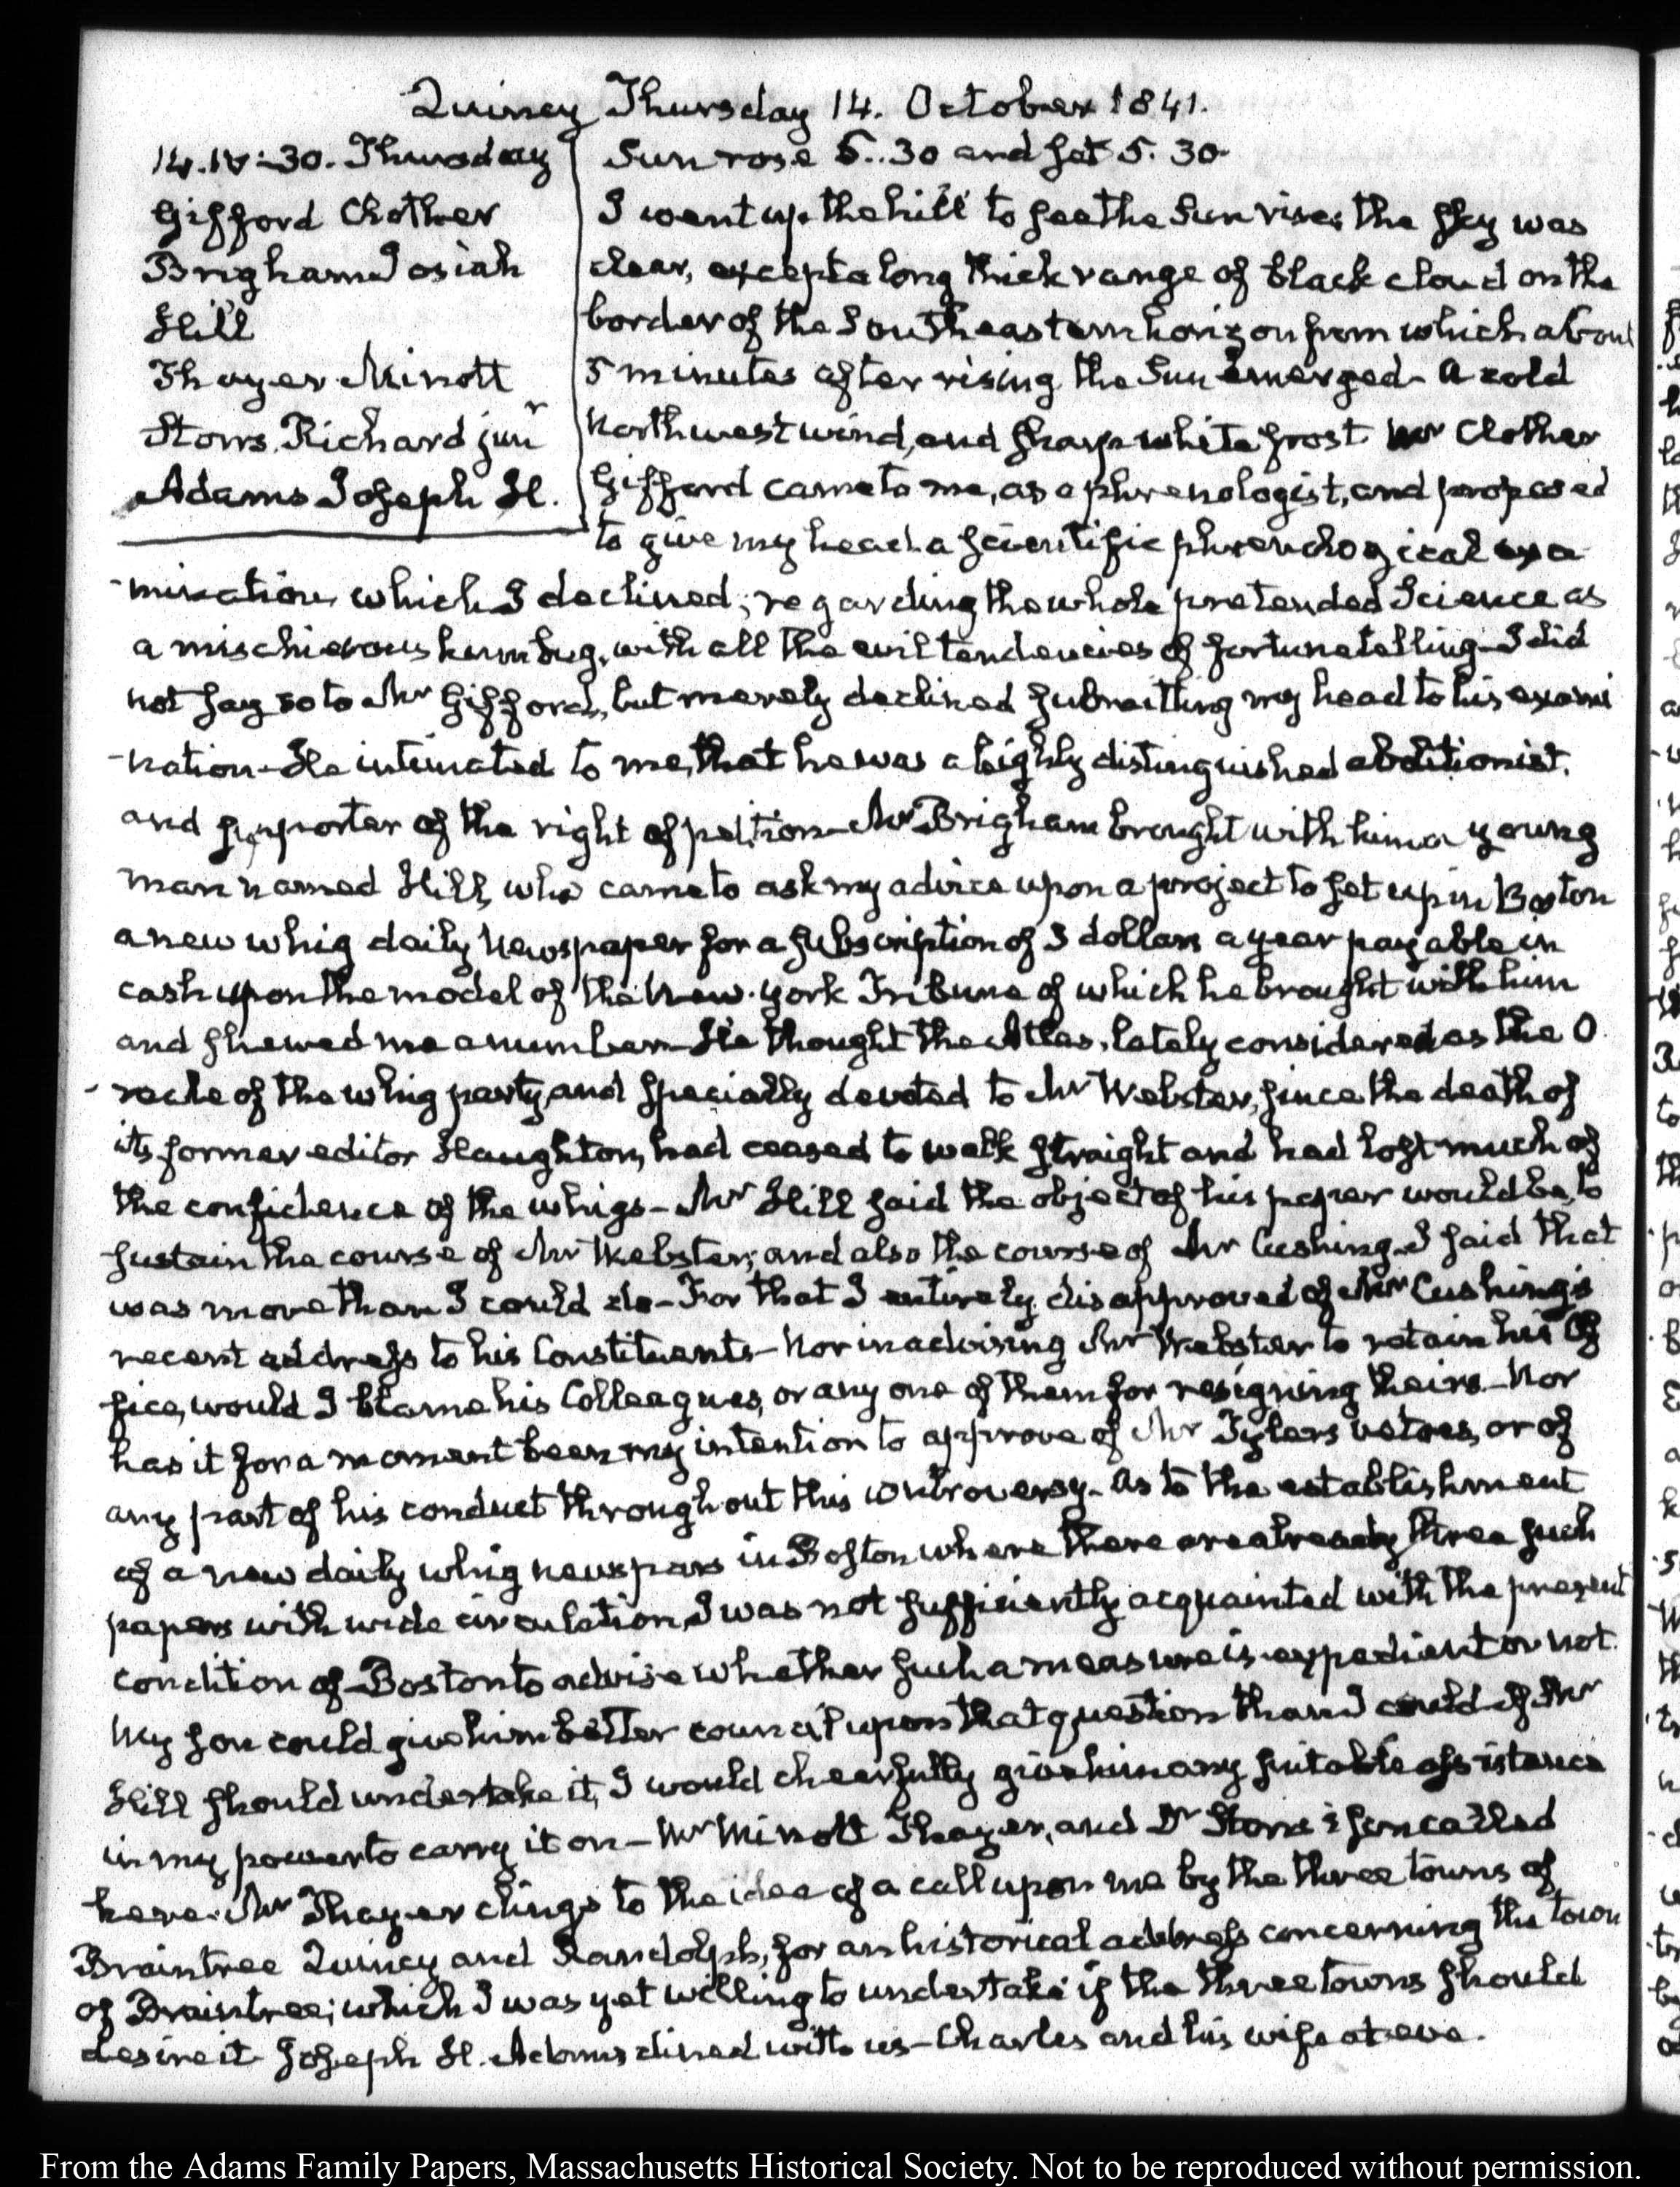 Quincy Thursday 14. October 1841.
14. IV:30. Thursday
Gifford Clother
Brigham Josiah
Hill
Thayer Minott
Storrs Richard junr
Adams Joseph H.
Sun rose 6..30 and set 5. 30
I went up the hill to see the Sun rise; the sky was
clear, except a long thick range of black cloud on the
border of the Southeastern horizon from which about
5 minutes after rising the Sun emerged— A cold
Northwest wind, and sharp white frost Mr Clother
Gifford came to me, as a phrenologist, and proposed
to give my head a scientific phrenological exa
-mination which I declined; regarding the whole pretended Science as
a mischievous humbug, with all the evil tendencies of fortunetelling— I did
not say so to Mr Gifford, but merely declined submitting my head to his exami
-nation— He intimated to me, that he was a highly distinguished abolitionist.
and supporter of the right of petition— Mr Brigham brought with him a young
man named Hill, who came to ask my advice upon a project to set up in Boston
a new whig daily Newspaper for a subscription of 3 dollars a year payable in
cash upon the model of the New-York Tribune of which he brought with him
and shewed me a number— He thought the Atlas, lately considered as the O
-racle of the whig party, and specially devoted to Mr Webster, since the death of
its former editor Haughton, had ceased to walk straight and had lost much of
the confidence of the whigs— Mr Hill said the object of his paper would be, to
sustain the course of Mr Webster; and also the course of Mr Cushing— I said that
was more than I could do— For that I entirely disapproved of Mr Cushing's
recent address to his Constituents— Nor in advising Mr Webster to retain his Of
fice, would I blame his Colleagues, or any one of them for resigning theirs— Nor
has it for a moment been my intention to approve of Mr Tylers vetoes, or of
any part of his conduct throughout this controversy— As to the establishment
of a new daily whig newspars in Boston where there are already three such
papers with wide circulation, I was not sufficiently acquainted with the present
condition of Boston to advise whether such a measure is expedient or not.
My son could give him better council upon that question than I could— If Mr
Hill should undertake it, I would cheerfully give him any suitable assistance
in my power to carry it on— Mr Minott Thayer, and Dr Storrs's son called
here. Mr Thayer clings to the idea of a call upon me by the three towns of
Braintree Quincy and Randolph, for an historical address concerning the town
of Braintree; which I was yet willing to undertake if the three towns should
desire it— Joseph H. Adams dined with us— Charles and his wife at eve.
From the Adams Family Papers, Massachusetts Historical Society. Not to be reproduced without permission.